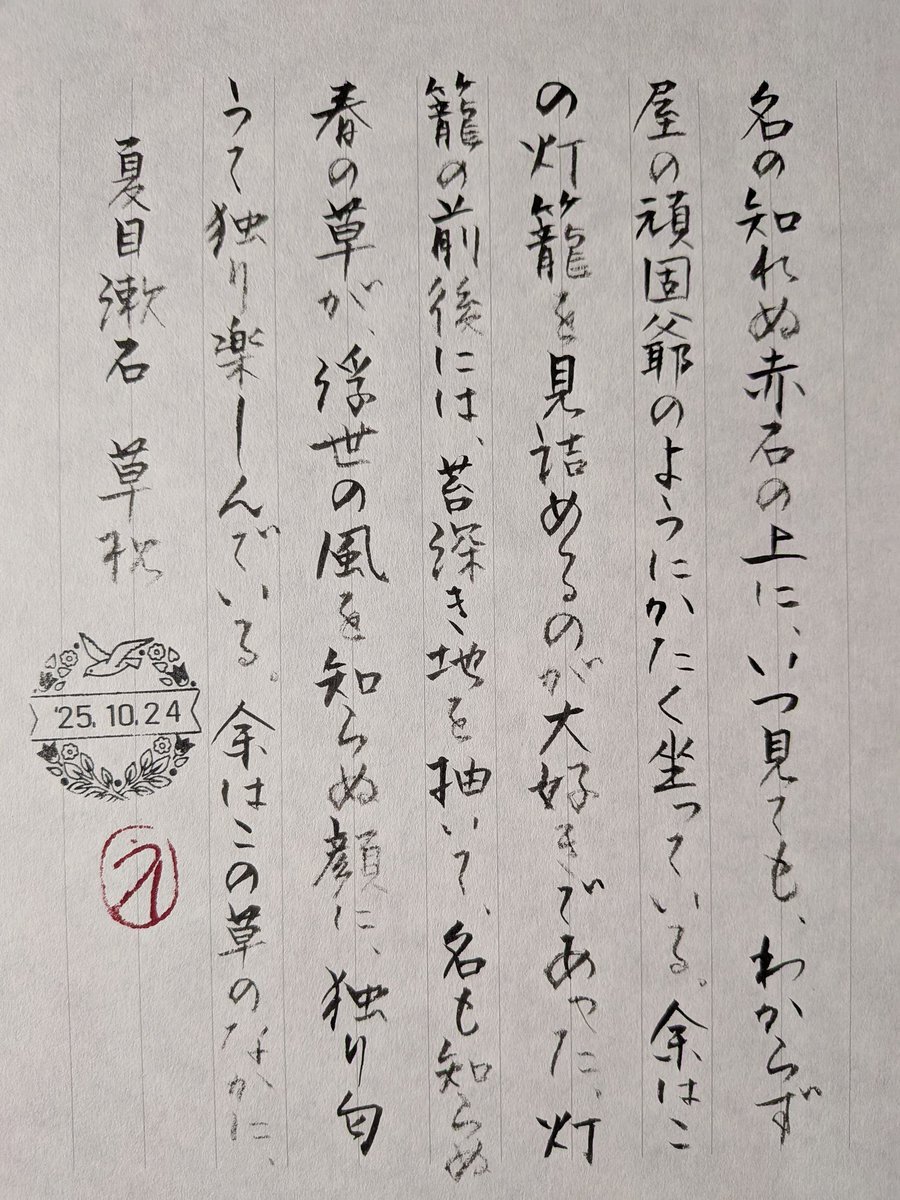 名の知れぬ赤石の上に、いつ見ても、わからず
屋の頑固爺のようにかたく坐っている。余はこ
の灯籠を見詰めるのが大好きであった、灯
籠の前後には、苔深き地を抽いて、名も知らぬ
春の草が、浮世の風を知らぬ顔に、独り匂
うて独り楽しんでいる。余はこの草のなかに、
夏目漱石 草枕
'25.10.24